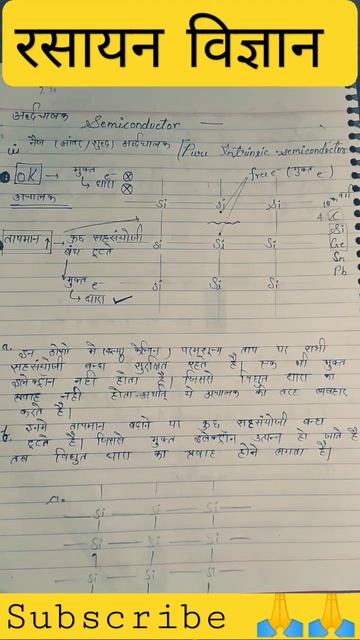 रसायन विज्ञान
अर्द्धचालक
Semiconductor —
(i) नैज (आंतर / शुद्ध) अर्द्धचालक [Pure Intrinsic semiconductor
0K → मुक्त e⁻ ⊗
→ धारा ⊗
free e⁻ (मुक्त e⁻)
अचालक
Si Si Si
तापमान ↑ → कुछ सहसंयोजी
बंध टूटते
Si Si Si
मुक्त e⁻
→ धारा ✓
Si Si Si
C
Si
Ge
Sn
Pb
a. इन ठोसो में परमशून्य ताप पर सभी
सहसंयोजी बन्ध सुरक्षित रहते है। एक भी मुक्त
इलेक्ट्रान नही होता है। जिससे विद्युत धारा का
प्रवाह नही होता अर्थात् ये अचालक की तरह व्यवहार
करते है।
इनमे तापमान बढाने पर कुछ सहसंयोजी बन्ध
टूटते है। जिससे मुक्त इलेक्ट्रॉन उत्पन्न हो जाते है
तब विद्युत धारा का प्रवाह होने लगता है।
Si Si Si
Si Si Si
Si Si Si
Subscribe 🙏🙏